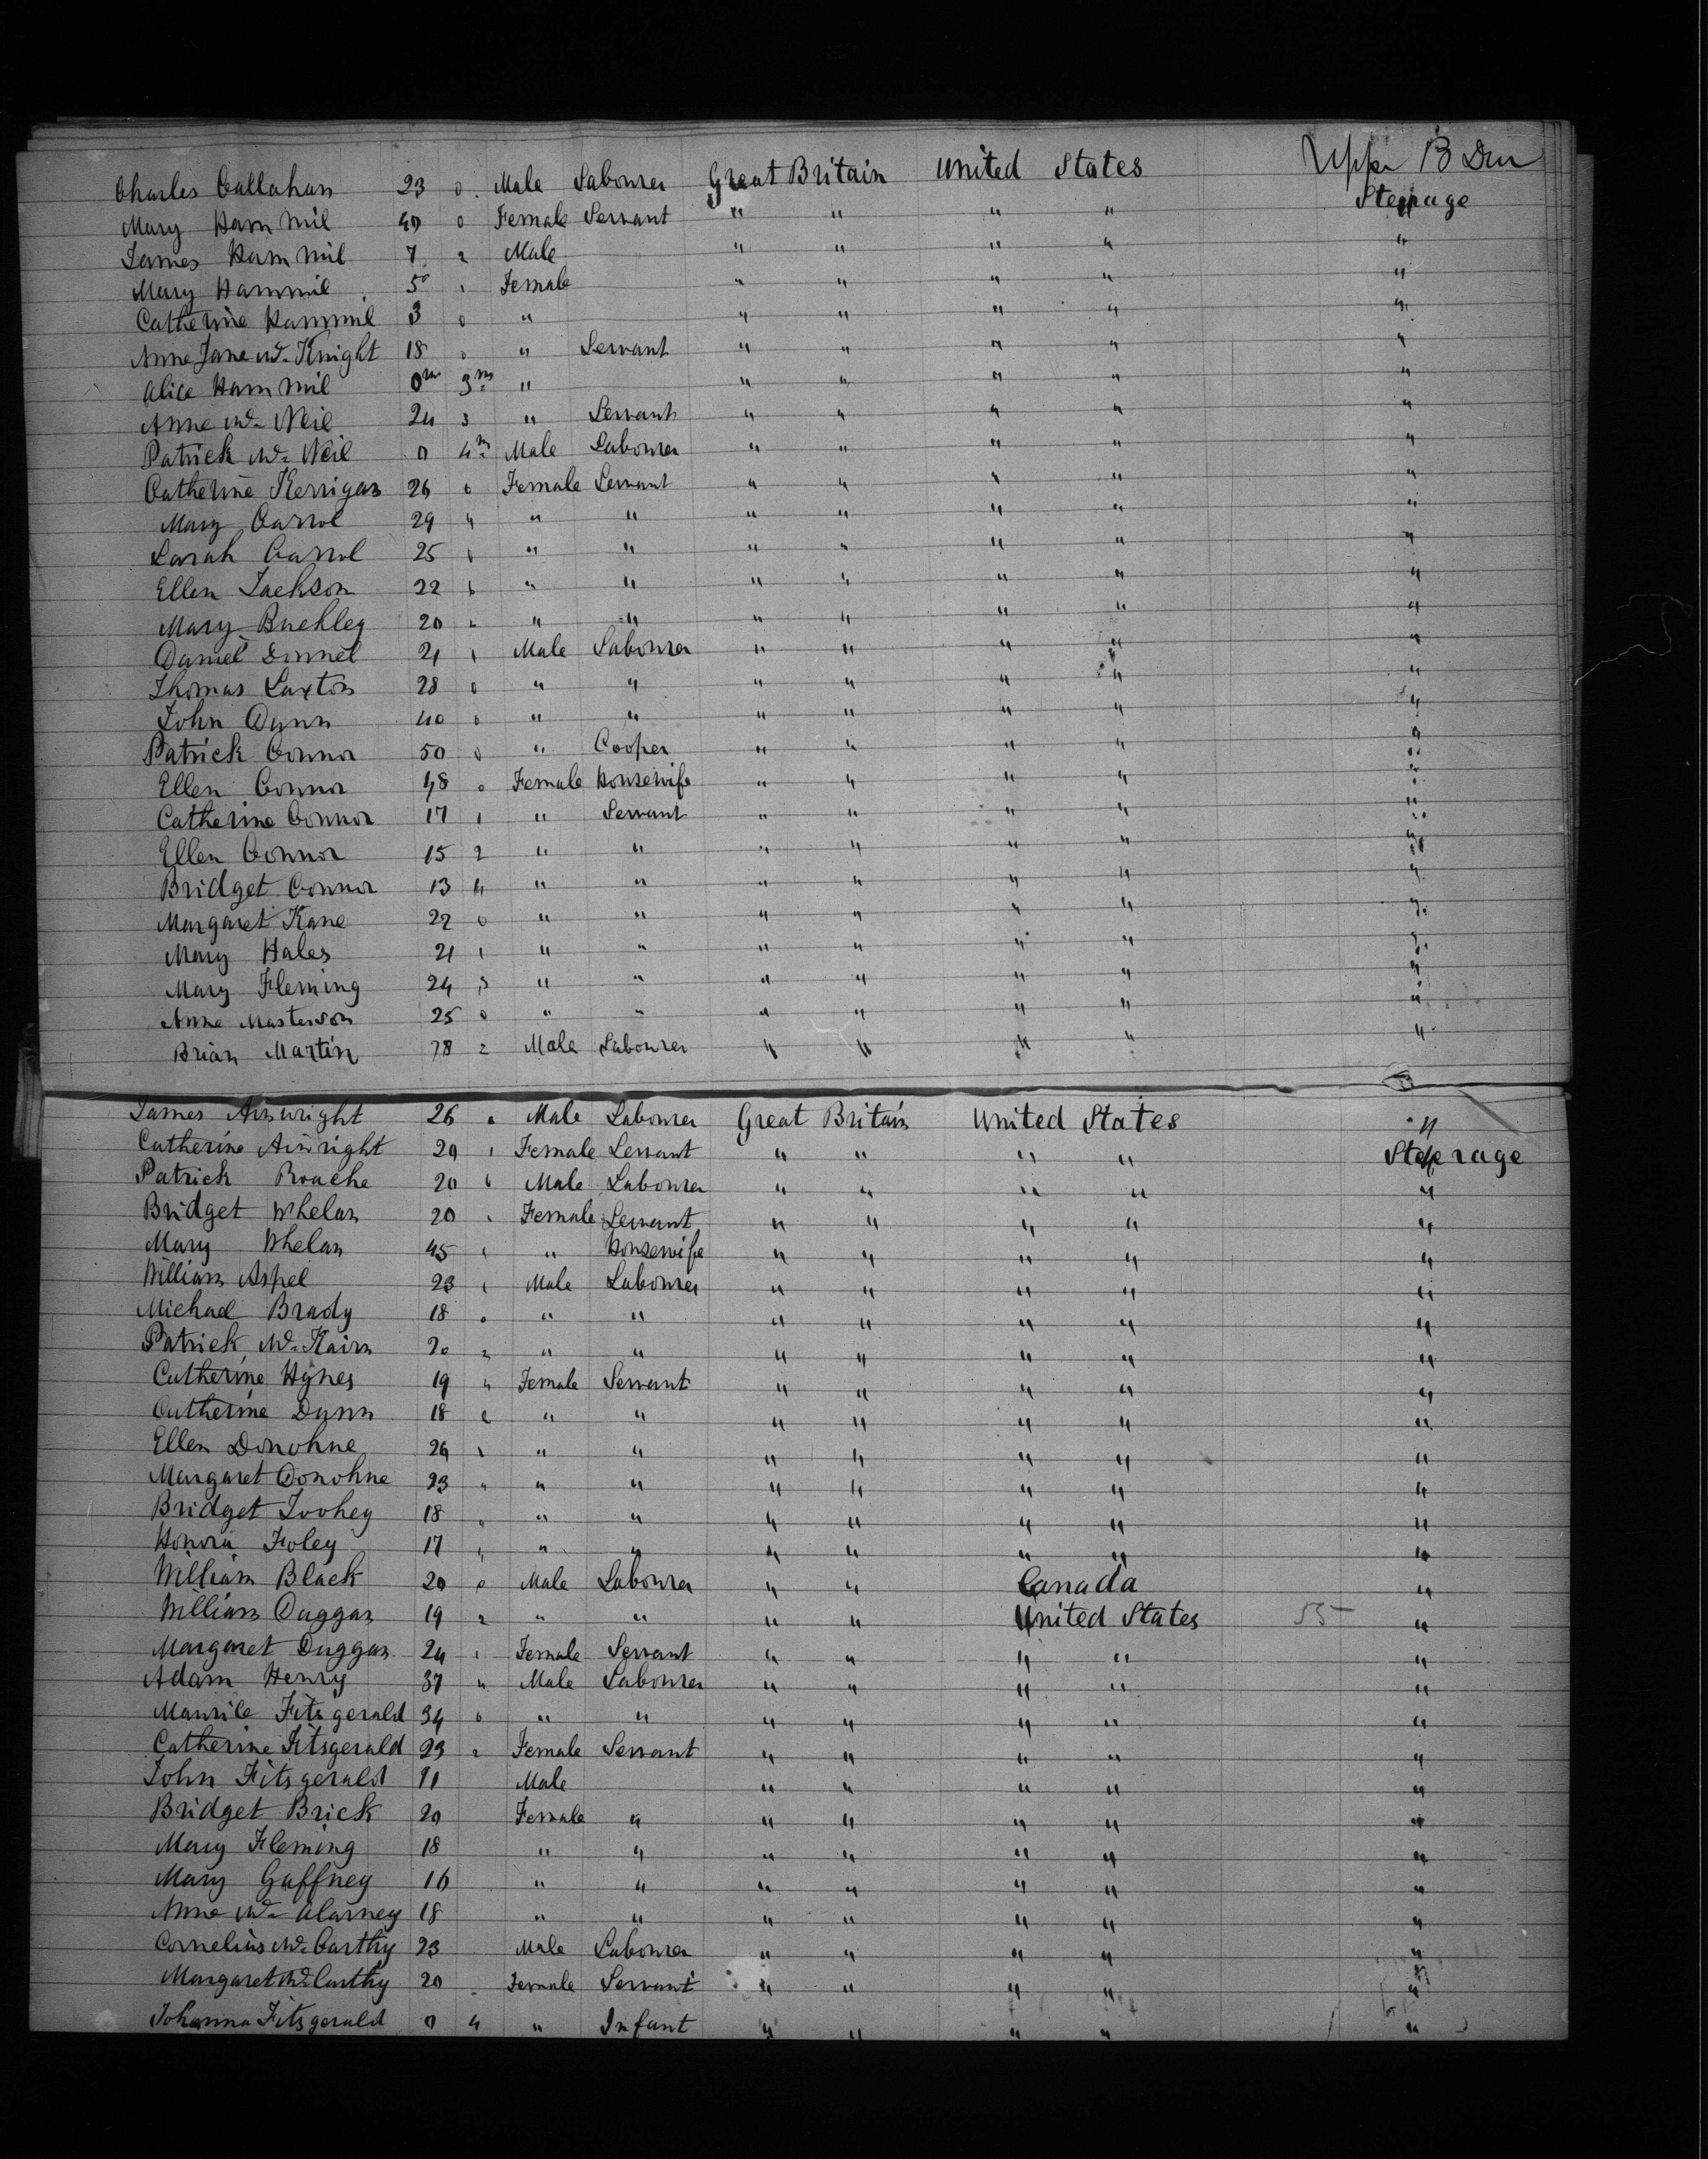 Upper B Dun
Charles Callahan 23 0 Male Labourer Great Britain United States Steerage
Mary Hammil 40 0 Female Servant " " " " "
James Hammil 7 2 Male " " " " "
Mary Hammil 5 1 Female " " " " "
Catherine Hammil 3 0 " " " " " "
Anne Jane Mc Knight 18 0 " Servant " " " " "
Alice Hammil 0 m 3 m " " " " " "
Anne Mc Neil 24 3 " Servant " " " " "
Patrick Mc Neil 0 4 m Male Labourer " " " " "
Catherine Kerrigan 26 0 Female Servant " " " " "
Mary Carrol 29 " " " " " " " "
Sarah Carrol 25 " " " " " " "
Ellen Jackson 22 " " " " " " "
Mary Buckley 20 " " " " " " " "
Daniel Donnel 21 1 Male Labourer " " " " "
Thomas Laxton 28 0 " " " " " " "
John Dunn 40 0 " " " " " " "
Patrick Connor 50 0 " Cooper " " " " "
Ellen Connor 48 0 Female Housewife " " " " "
Catherine Connor 17 1 " Servant " " " " "
Ellen Connor 15 2 " " " " " " "
Bridget Connor 13 4 " " " " " " "
Margaret Kane 22 0 " " " " " " "
Mary Hales 21 1 " " " " " " "
Mary Fleming 24 3 " " " " " " "
Anne Masterson 25 0 " " " " " " "
Brian Martin 28 2 Male Labourer " " " " "
James Ainwright 26 0 Male Labourer Great Britain United States "
Catherine Ainright 20 1 Female Servant " " " " Steerage
Patrick Roache 20 Male Labourer " " " " "
Bridget Whelan 20 Female Servant " " " " "
Mary Whelan 45 " Housewife " " " " "
William Aspel 23 1 Male Labourer " " " " "
Michael Brady 18 0 " " " " " " "
Patrick Mc Kairn 20 2 " " " " " " "
Catherine Hynes 19 " Female Servant " " " " "
Catherine Dunn 18 " " " " " " "
Ellen Donohue 26 1 " " " " " " "
Margaret Donohue 23 " " " " " " " "
Bridget Toohey 18 " " " " " " " "
Honora Foley 17 " " " " " " "
William Black 20 0 Male Labourer " " Canada "
William Duggan 19 2 " " " " United States 55 "
Margaret Duggan 24 1 Female Servant " " " " "
Adam Henry 37 " Male Labourer " " " " "
Maurice Fitsgerald 34 0 " " " " " " "
Catherine Fitsgerald 23 2 Female Servant " " " " "
John Fitsgerald 11 Male " " " " "
Bridget Brick 20 Female " " " " " "
Mary Fleming 18 " " " " " " "
Mary Gaffney 16 " " " " " " "
Anne Mc Alarney 18 " " " " " " "
Cornelius Mc Carthy 23 Male Labourer " " " " "
Margaret Mc Carthy 20 Female Servant " " " " "
Johanna Fitsgerald 0 4 " Infant " " " " "